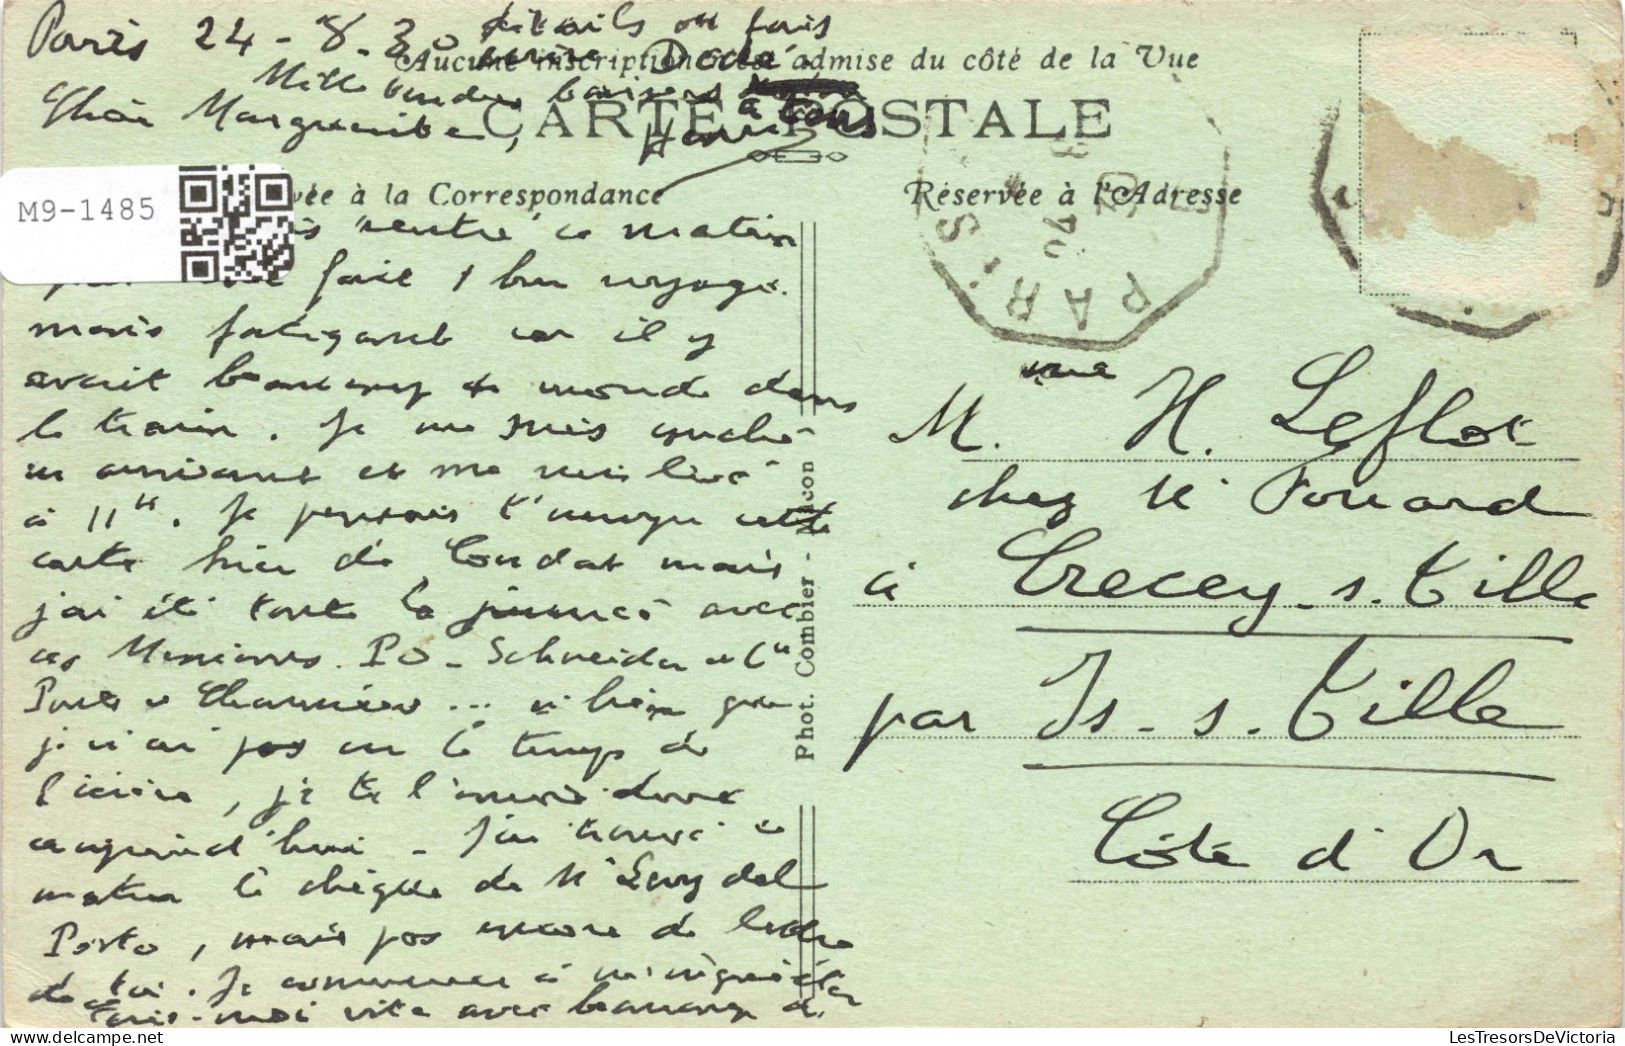 Paris 24-8-30
détails ou fais
Aucune inscription admise du côté de la Vue
Dédé.
Mille tendres baisers
à tous
Chère Marguerite,
CARTE POSTALE
Henri
M9-1485
à la Correspondance
Réservée à l'Adresse
PARIS
rentré ce matin
fait 1 bon voyage.
mais fatigant car il y
avait beaucoup de monde dans
le train. Je me suis couché
en arrivant et me suis levé
à 11h. Je pensais t'envoyer cette
carte hier de Condat mais
j'ai été toute la journée avec
ces Messieurs. PO - Schneider et Cie
si bien que
je n'ai pas eu le temps de
l'écrire, je te l'envoie donc
aujourd'hui - J'ai trouvé ce
matin le chèque de Mr Levy del
Porto, mais pas encore de lettre
de toi. Je commence à m'inquiéter
écris-moi vite avec beaucoup de
Phot. Combier - Macon
M. H. Leflot
chez Mr Fouard
à Crecey-s.-Tille
par Is-s.-Tille
Côte d'Or
LesTresorsDeVictoria